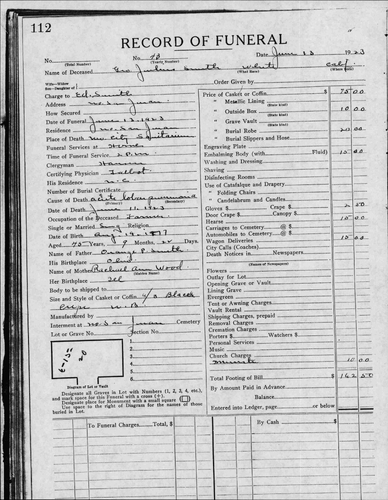 112
RECORD OF FUNERAL
No. No. 73 Date June 13 1923
(Total Number) (Yearly Number)
Name of Deceased Smith White Calif
(What Race) (Where Born)
Order Given by
Charge to Ed. Smith
Address No. San Juan
How Secured
Date of Funeral June 13, 1923
Residence No. San Juan
Place of Death
Funeral Services at Home
Time of Funeral Service 2 P.M.
Clergyman
Certifying Physician Talbot
His Residence N. C.
Number of Burial Certificate
Cause of Death Acute Lobar pneumonia
(Primary) (Secondary)
Date of Death June 11, 1923
Occupation of the Deceased Farmer
Single or Married Sing Religion
Date of Birth Aug 19, 1877
Aged 45 Years, 9 Months, 22 Days
Name of Father Smith
His Birthplace Ohio
Name of Mother Rachael Ann Wood
(Maiden Name)
Her Birthplace Ill
Body to be shipped to
Size and Style of Casket or Coffin 6/0 Black
Crepe
Manufactured by
Interment at No. San Juan Cemetery
Lot or Grave No. Section No.
1.
2.
3.
4.
5.
6.
7.
Diagram of Lot or Vault
Designate all Graves in Lot with Numbers (1, 2, 3, 4, etc.),
and mark space for this Funeral with a cross (+).
Designate place for Monument with a small square
Use space to right of Diagram for the names of those
buried in Lot.
Price of Casket or Coffin 75 00
" Metallic Lining
(State kind)
" Outside Box 10 00
(State kind)
" Grave Vault
(State kind)
" Burial Robe 20 00
(State kind)
" Burial Slippers and Hose
Engraving Plate
Embalming Body (with Fluid) 15 00
Washing and Dressing
Shaving
Disinfecting Rooms
Use of Catafalque and Drapery
" Folding Chairs
" Candelabrum and Candles
" Gloves $ Crape $ 2 50
Door Crape $ Canopy $
Hearse 10 00
Carriages to Cemetery @ $
Automobiles to Cemetery @ $
Wagon Deliveries 10 00
City Calls (Coaches)
Death Notices in Newspapers
(Names of Newspapers)
Flowers
Outlay for Lot
Opening Grave or Vault
Lining Grave
Evergreen
Tent or Awning Charges
Vault Rental
Shipping Charges, prepaid
Removal Charges
Cremation Charges
Porters $ Watchers $
Personal Services
Music
Church Charges
10 00
Total Footing of Bill $ 162 50
By Amount Paid in Advance
Balance
Entered into Ledger, page or below
To Funeral Charges Total, $
By Cash $
Balance, $